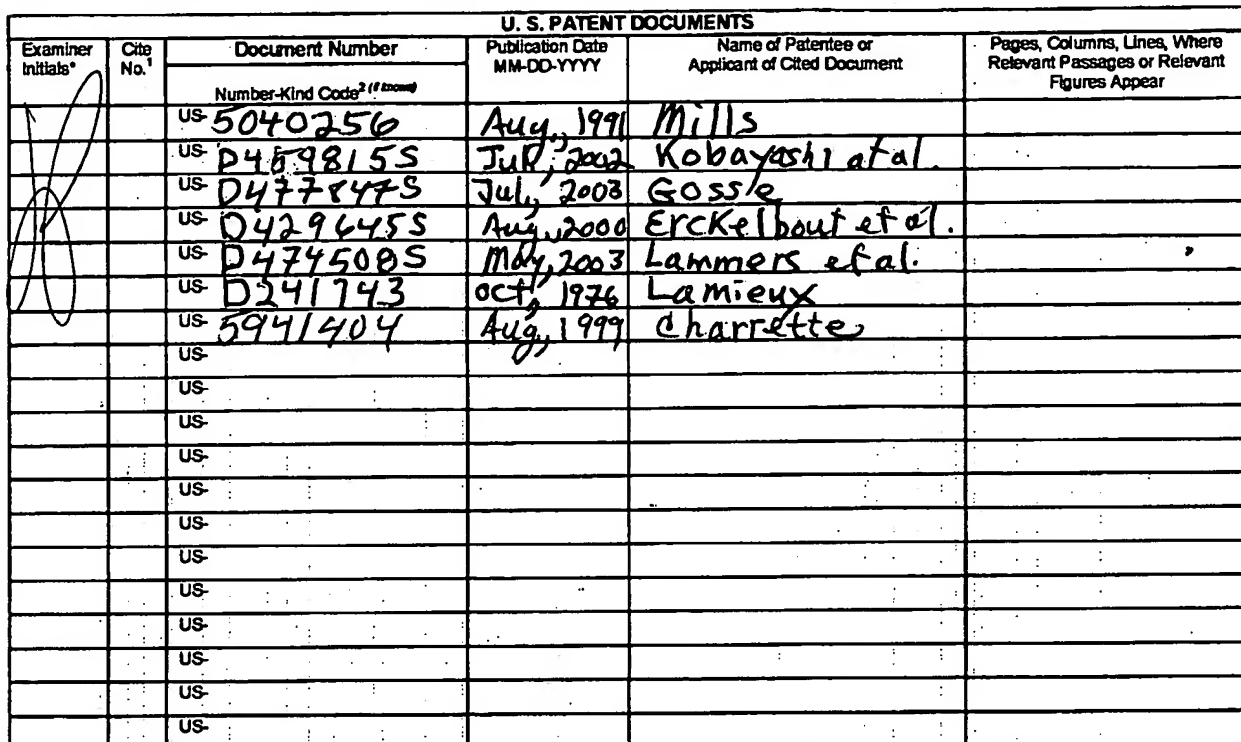 U. S. PATENT DOCUMENTS
Examiner Initials* Cite No.1 Document Number Publication Date MM-DD-YYYY Name of Patentee or Applicant of Cited Document Pages, Columns, Lines, Where Relevant Passages or Relevant Figures Appear
Number-Kind Code2 (if known)
US- 5040256 Aug., 1991 Mills
US- D459815S Jul., 2002 Kobayashi at al.
US- D477847S Jul., 2003 Gossle
US- D429645S Aug., 2000 Erckelbout et al.
US- D474508S May, 2003 Lammers et al.
US- D241743 oct., 1976 Lamieux
US- 5941404 Aug., 1999 Charrette
US-
US-
US-
US-
US-
US-
US-
US-
US-
US-
US-
US-